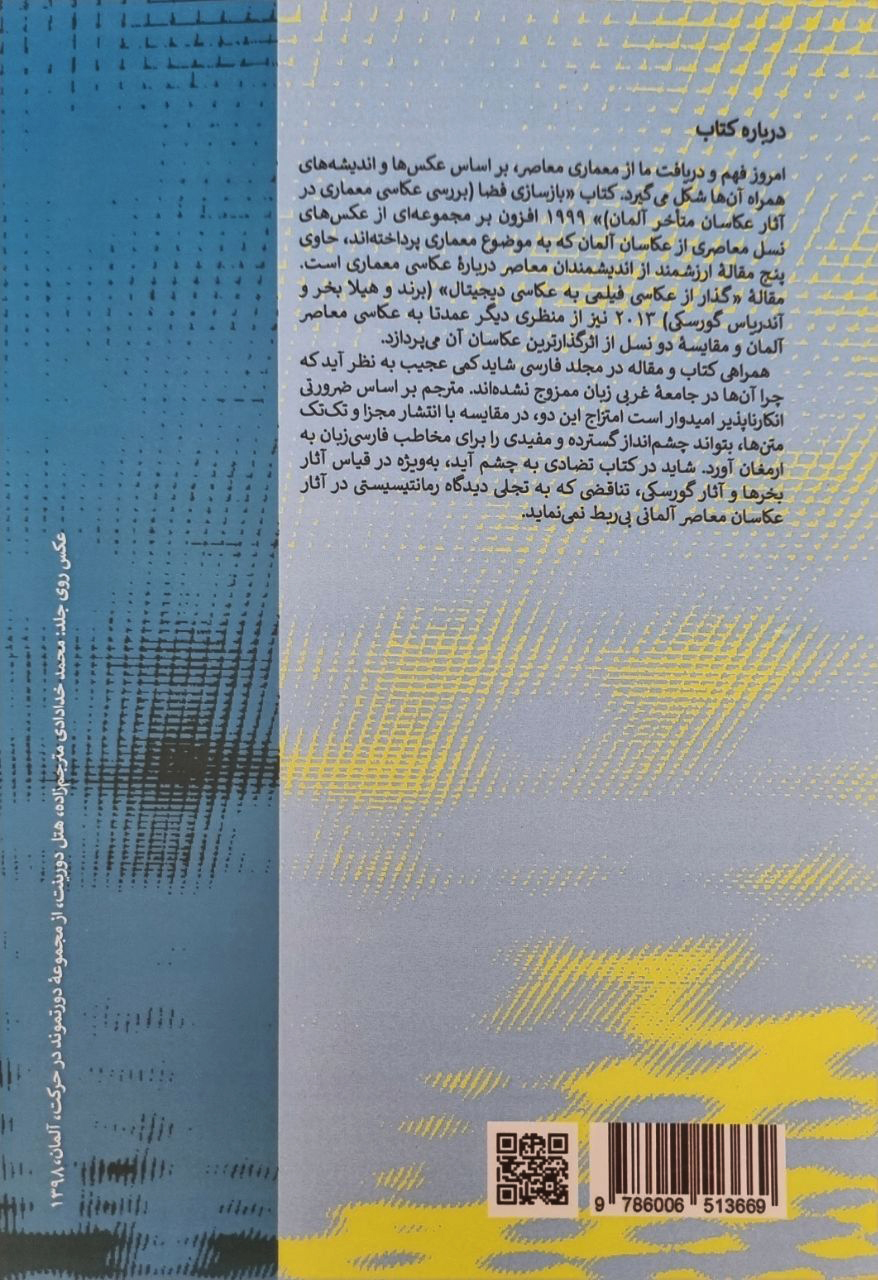 درباره کتاب
امروز فهم و دریافت ما از معماری معاصر، بر اساس عکس‌ها و اندیشه‌های
همراه آن‌ها شکل می‌گیرد. کتاب «بازسازی فضا (بررسی عکاسی معماری در
آثار عکاسان متأخر آلمان)» ۱۹۹۹ افزون بر مجموعه‌ای از عکس‌های
نسل معاصری از عکاسان آلمان که به موضوع معماری پرداخته‌اند، حاوی
پنج مقالهٔ ارزشمند از اندیشمندان معاصر دربارهٔ عکاسی معماری است.
مقالهٔ «گذار از عکاسی فیلمی به عکاسی دیجیتال» (برند و هیلا بخر و
آندریاس گورسکی) ۲۰۱۳ نیز از منظری دیگر عمدتا به عکاسی معاصر
آلمان و مقایسهٔ دو نسل از اثرگذارترین عکاسان آن می‌پردازد.
همراهی کتاب و مقاله در مجلد فارسی شاید کمی عجیب به نظر آید که
چرا آن‌ها در جامعهٔ غربی زبان ممزوج نشده‌اند. مترجم بر اساس ضرورتی
انکارناپذیر امیدوار است امتزاج این دو، در مقایسه با انتشار مجزا و تک‌تک
متن‌ها، بتواند چشم‌انداز گسترده و مفیدی را برای مخاطب فارسی‌زبان به
ارمغان آورد. شاید در کتاب تضادی به چشم آید، به‌ویژه در قیاس آثار
بخرها و آثار گورسکی، تناقضی که به تجلی دیدگاه رمانتیسیستی در آثار
عکاسان معاصر آلمانی بی‌ربط نمی‌نماید.
عکس روی جلد: محمد خدادادی مترجم‌زاده، هتل دورینت، از مجموعهٔ دورتموند در حرکت، آلمان، ۱۳۹۸
9 786006 513669